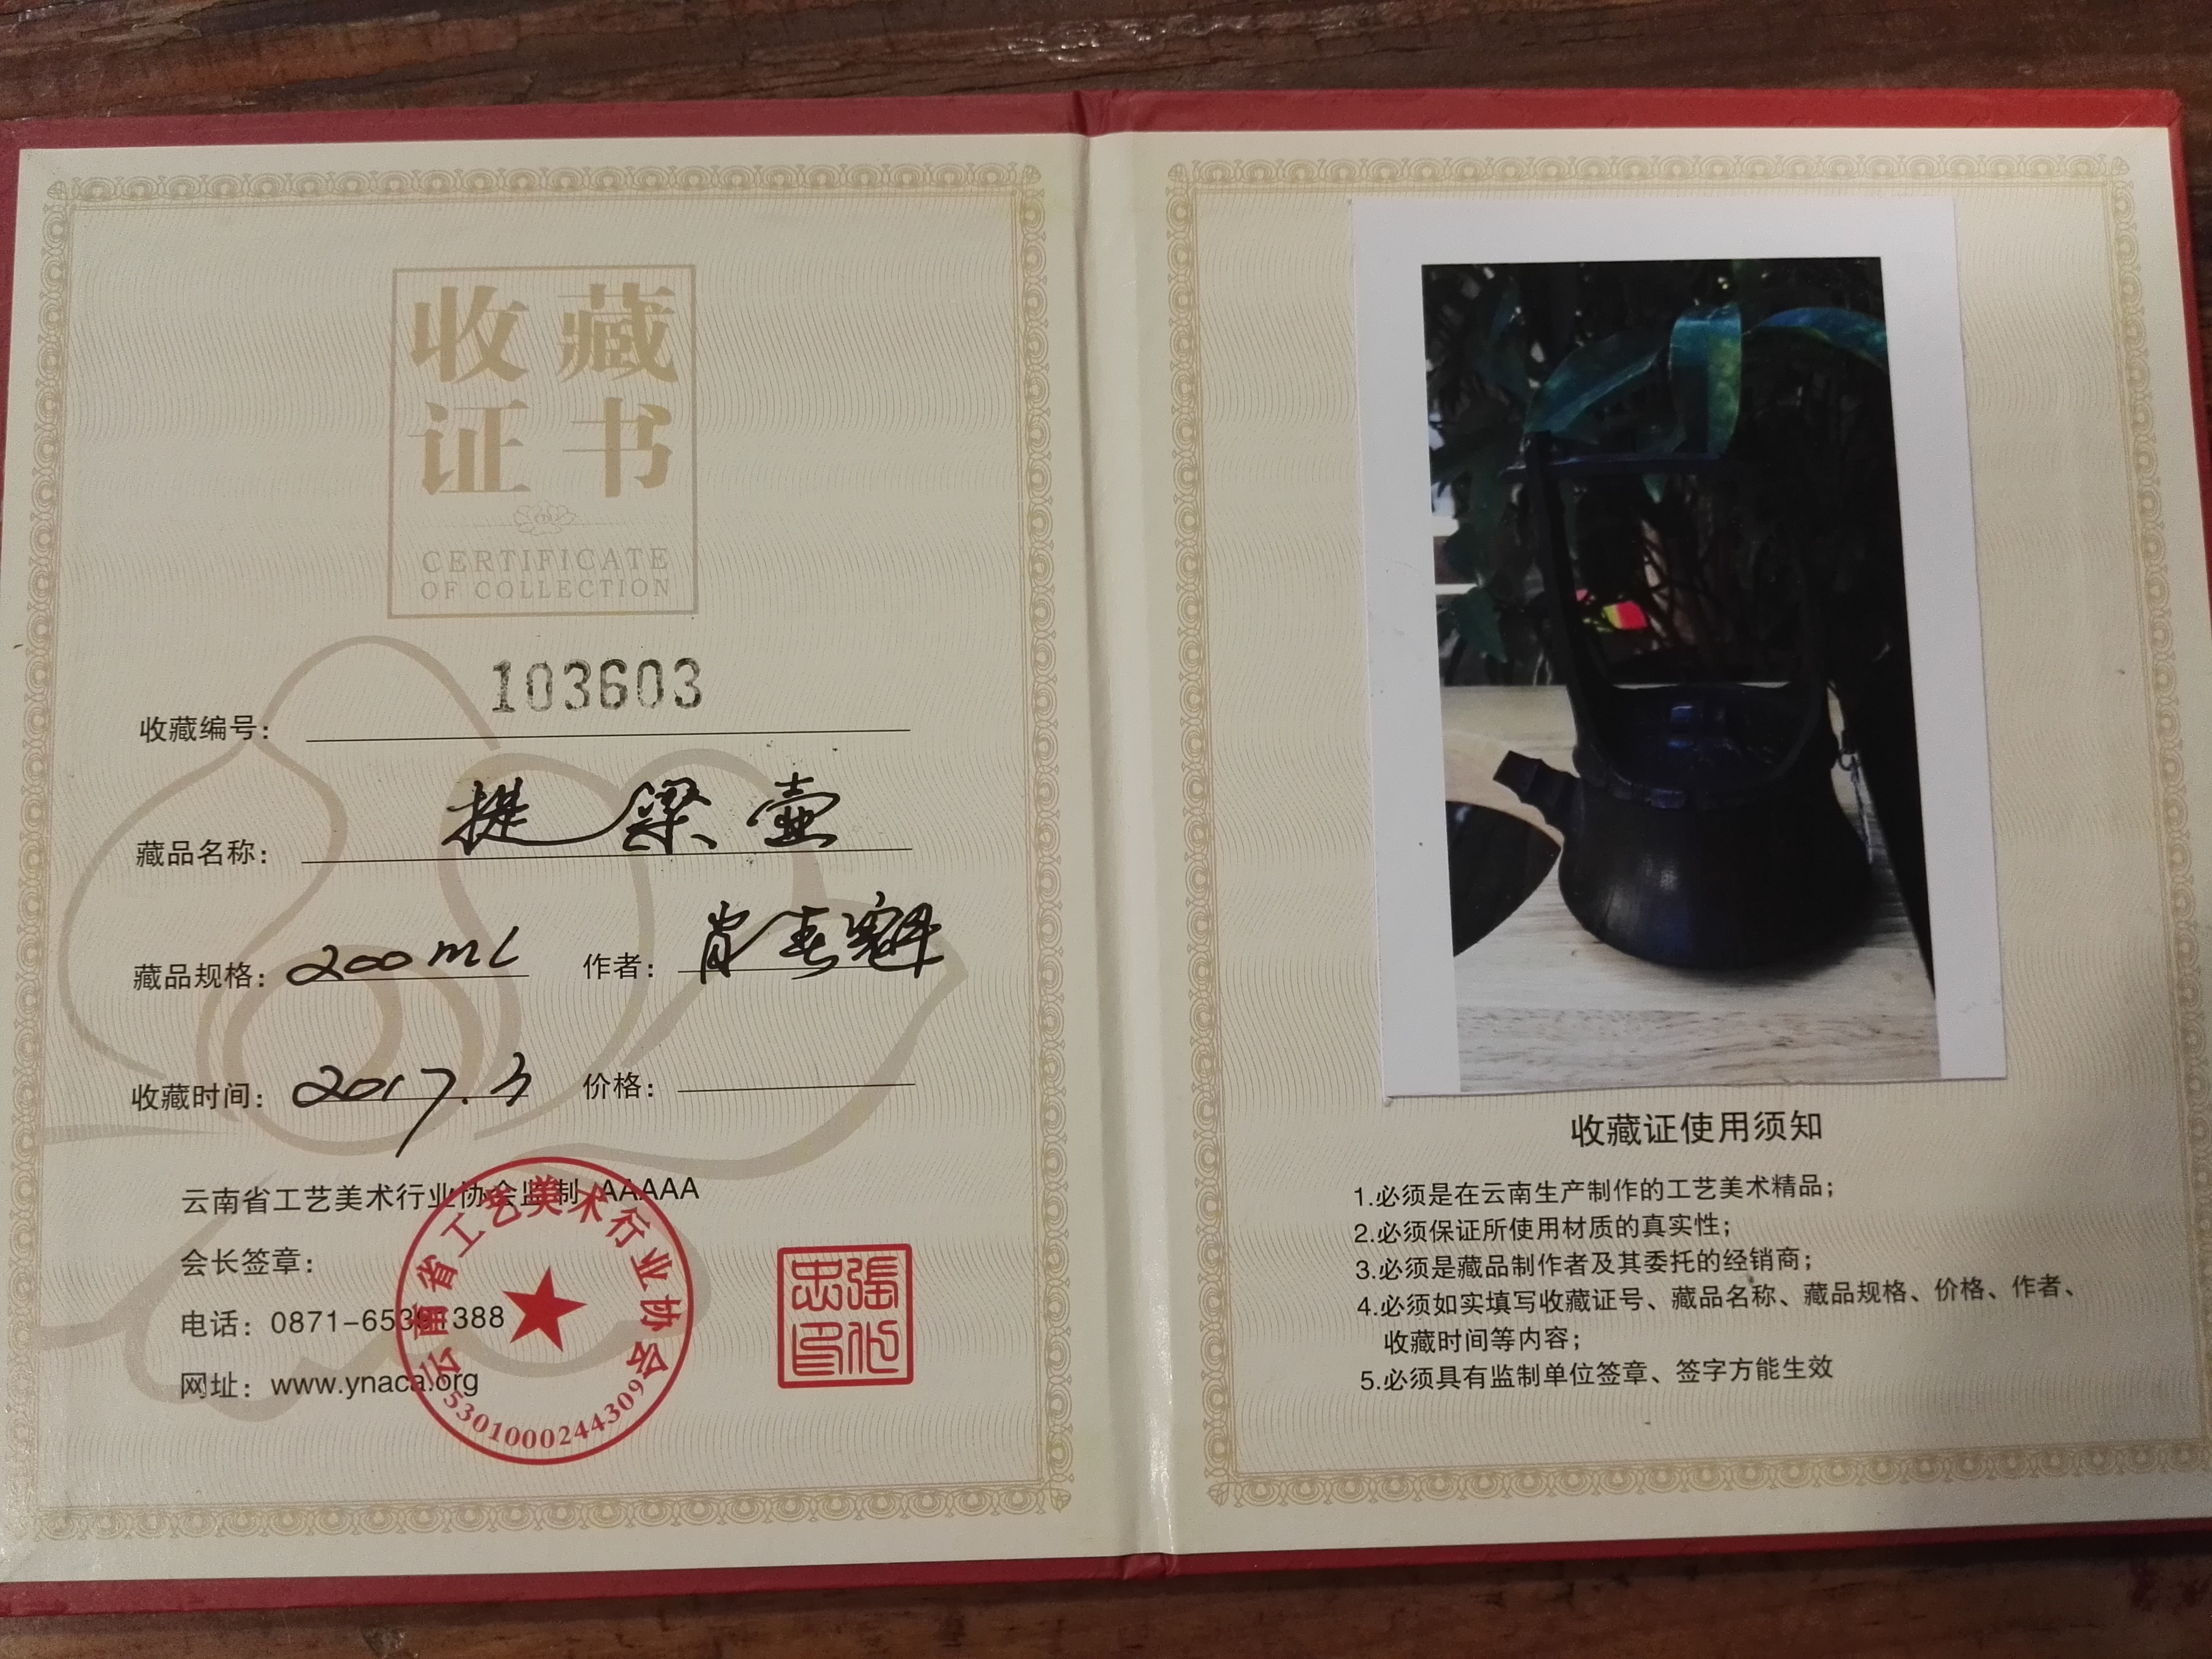 收藏
证书
CERTIFICATE
OF COLLECTION
103603
收藏编号：
藏品名称： 提梁壶
藏品规格： 200ml 作者： 肖春魁
收藏时间： 2017.3 价格：
云南省工艺美术行业协会监制 AAAAA
会长签章：
电话：0871-65391388
网址：www.ynaca.org
云南省工艺美术行业协会
5301000244309
收藏证使用须知
1.必须是在云南生产制作的工艺美术精品；
2.必须保证所使用材质的真实性；
3.必须是藏品制作者及其委托的经销商；
4.必须如实填写收藏证号、藏品名称、藏品规格、价格、作者、
收藏时间等内容；
5.必须具有监制单位签章、签字方能生效